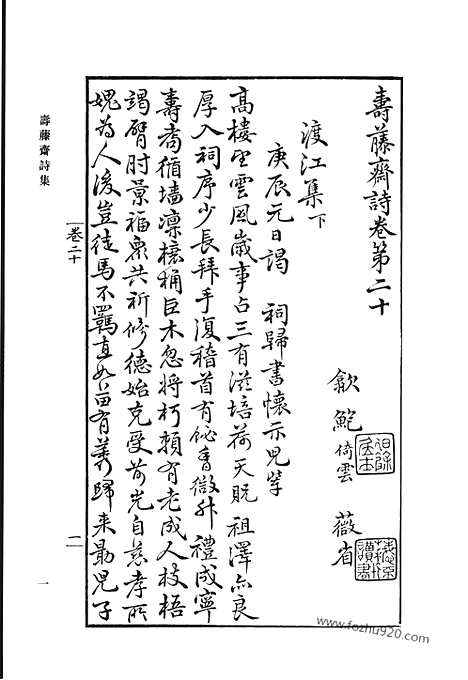 壽藤齋詩卷第二十
歙 鮑倚雲 薇省
渡江集下
庚辰元日謁 祠歸書懷示兒輩
高樓望雲風歲事占三有滋培荷天貺 祖澤亦良
厚入祠序少長拜手復稽首有飶香 禮成寧
壽耇循墙凜榱桷巨木忽將朽賴有老成人枝梧
竭臂肘景福衆共祈修德始克受前光自慈孝所
媿為人後豈徒馬不羈直如苗有莠歸来勗兒子
卷二十
一
壽藤齋詩集
一
www.fozhu920.com